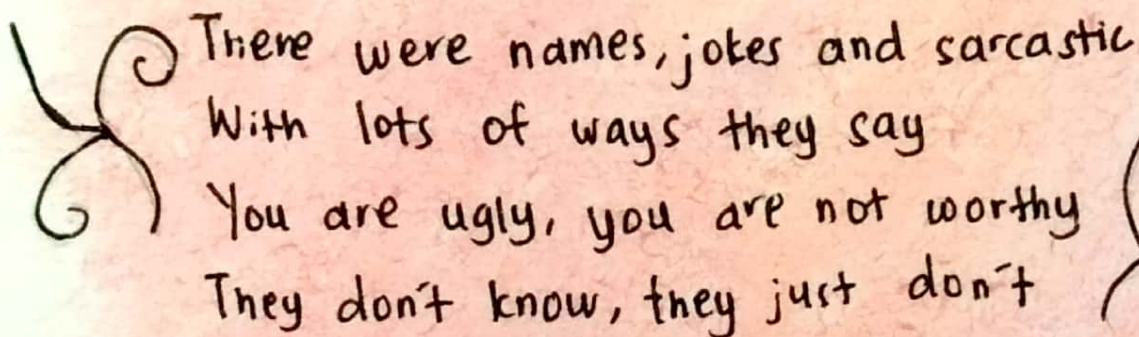 There were names, jokes and sarcastic
With lots of ways they say
You are ugly, you are not worthy
They don't know, they just don't